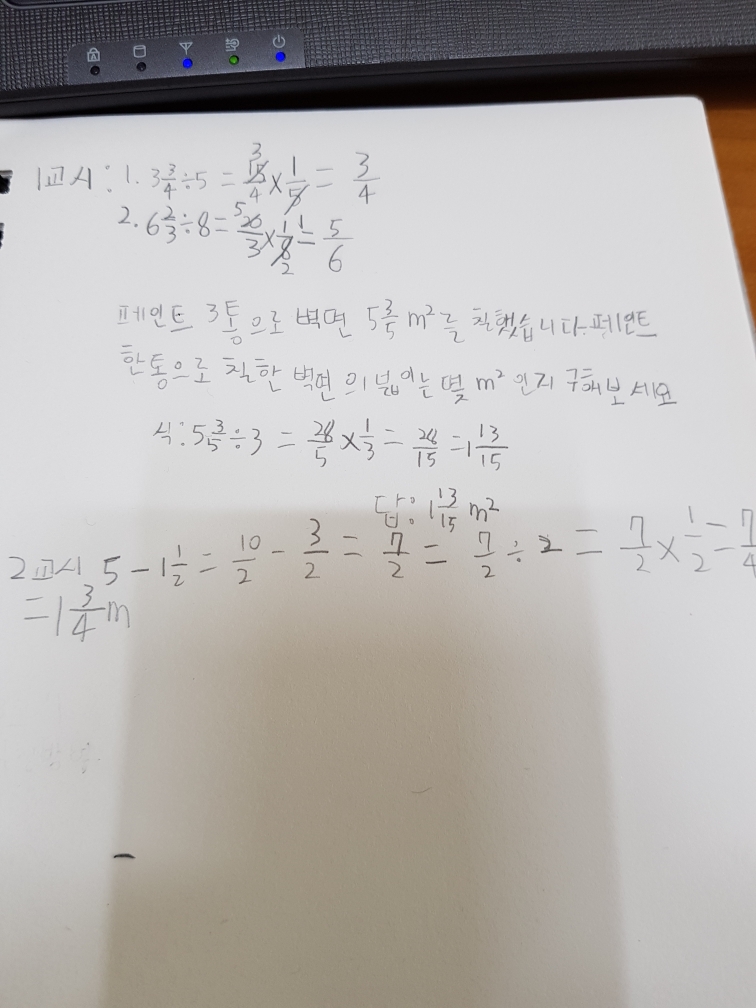 1교시: 1. 3 3/4 ÷ 5 = 15/4 × 1/5 = 3/4
2. 6 2/3 ÷ 8 = 20/3 × 1/8 = 5/6
페인트 3통으로 벽면 5 3/5 m²를 칠했습니다. 페인트
한통으로 칠한 벽면의 넓이는 몇 m² 인지 구해보세요
식: 5 3/5 ÷ 3 = 28/5 × 1/3 = 28/15 = 1 13/15
답: 1 13/15 m²
2교시 5 - 1 1/2 = 10/2 - 3/2 = 7/2 = 7/2 ÷ 2 = 7/2 × 1/2 = 7/4
= 1 3/4 m